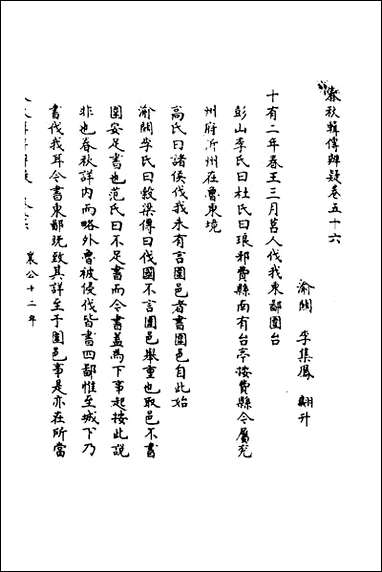 春秋輯傳辨疑卷五十六
渝關 李集鳳 翽升
十有二年春王三月莒人伐我東鄙圍台
彭山李氏曰杜氏曰琅邪費縣南有台亭按費縣今屬兖
州府沂州在魯東境
高氏曰諸侯伐我未有言圍邑者書圍邑自此始
渝關李氏曰穀梁傳曰伐國不言圍邑舉重也取邑不書
圍安足書也范氏曰不足書而今書蓋為下事起按此說
非也春秋詳内而略外魯被侵伐皆書四鄙惟至城下乃
書伐我耳今書東鄙既致其詳至于圍邑事是亦在所當
襄公十二年